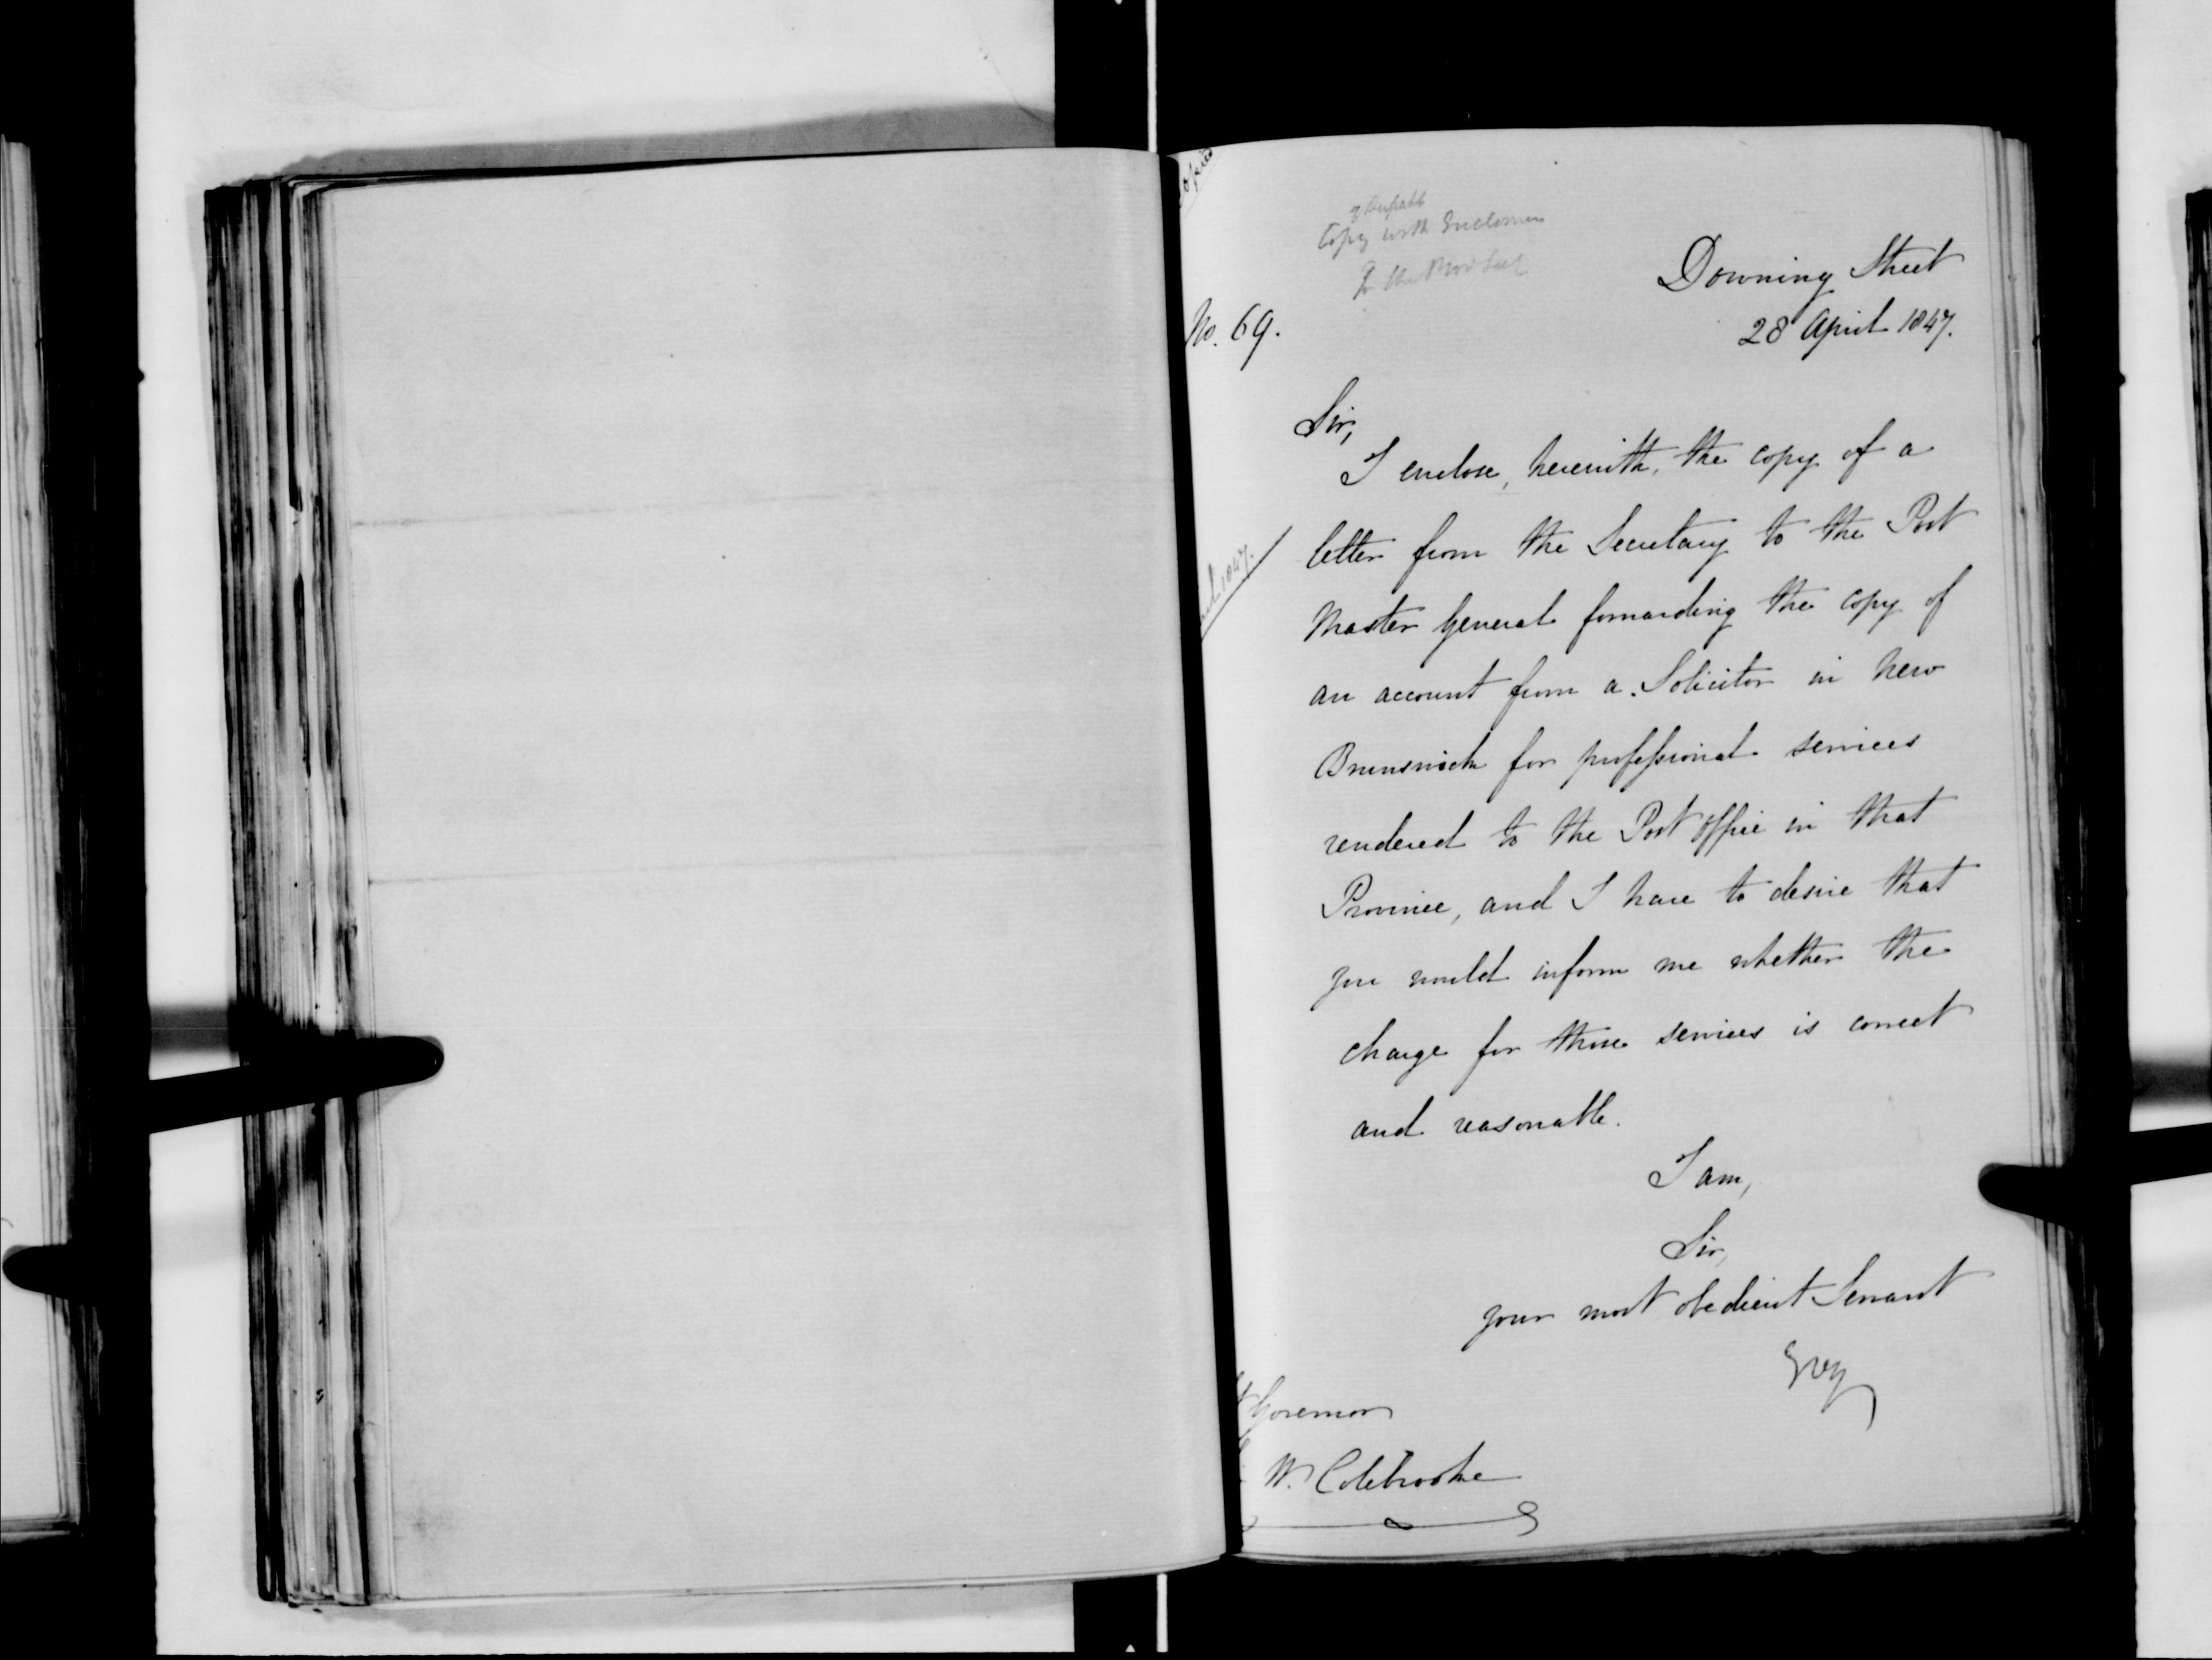 Copy with Enclosures
No. 69.
Downing Street
28 April 1847.
Sir,
I enclose, herewith, the copy of a
letter from the Secretary to the Post
Master General forwarding the copy of
an account from a Solicitor in New
Brunswick for professional services
rendered to the Post Office in that
Province, and I have to desire that
you would inform me whether the
charge for those services is correct
and reasonable.
I am,
Sir,
Your most obedient Servant
Grey
1847.
Governor
W. Colebrooke